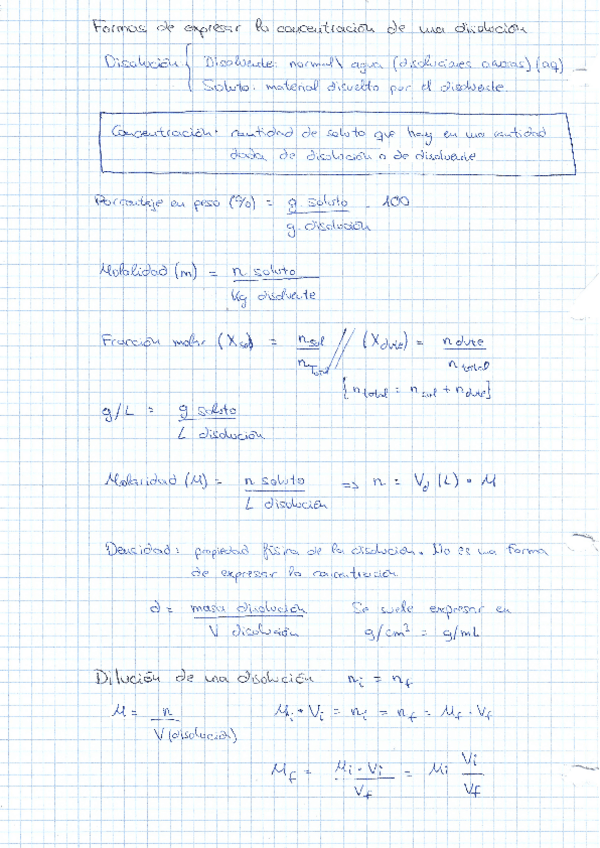 Formas de expresar la concentración de una disolución
Disolución { Disolvente: normal\ agua (disoluciones acuosas) (aq)
Soluto: material disuelto por el disolvente.
Concentración: cantidad de soluto que hay en una cantidad
dada de disolución o de disolvente
Porcentaje en peso (%) = g soluto / g disolución · 100
Molalidad (m) = n soluto / Kg disolvente
Fracción molar (Xsol) = nsol / nTotal // (Xdvte) = n dvte / n total
{n total = n sol + n dvte}
g/L = g soluto / L disolución
Molaridad (M) = n soluto / L disolución => n = Vd (L) · M
Densidad: propiedad física de la disolución. No es una forma
de expresar la concentración
d = masa disolución / V disolución Se suele expresar en
g/cm³ = g/mL
Dilución de una disolución ni = nf
M = n / V(disolución) Mi · Vi = ni = nf = Mf · Vf
Mf = Mi · Vi / Vf = Mi Vi / Vf